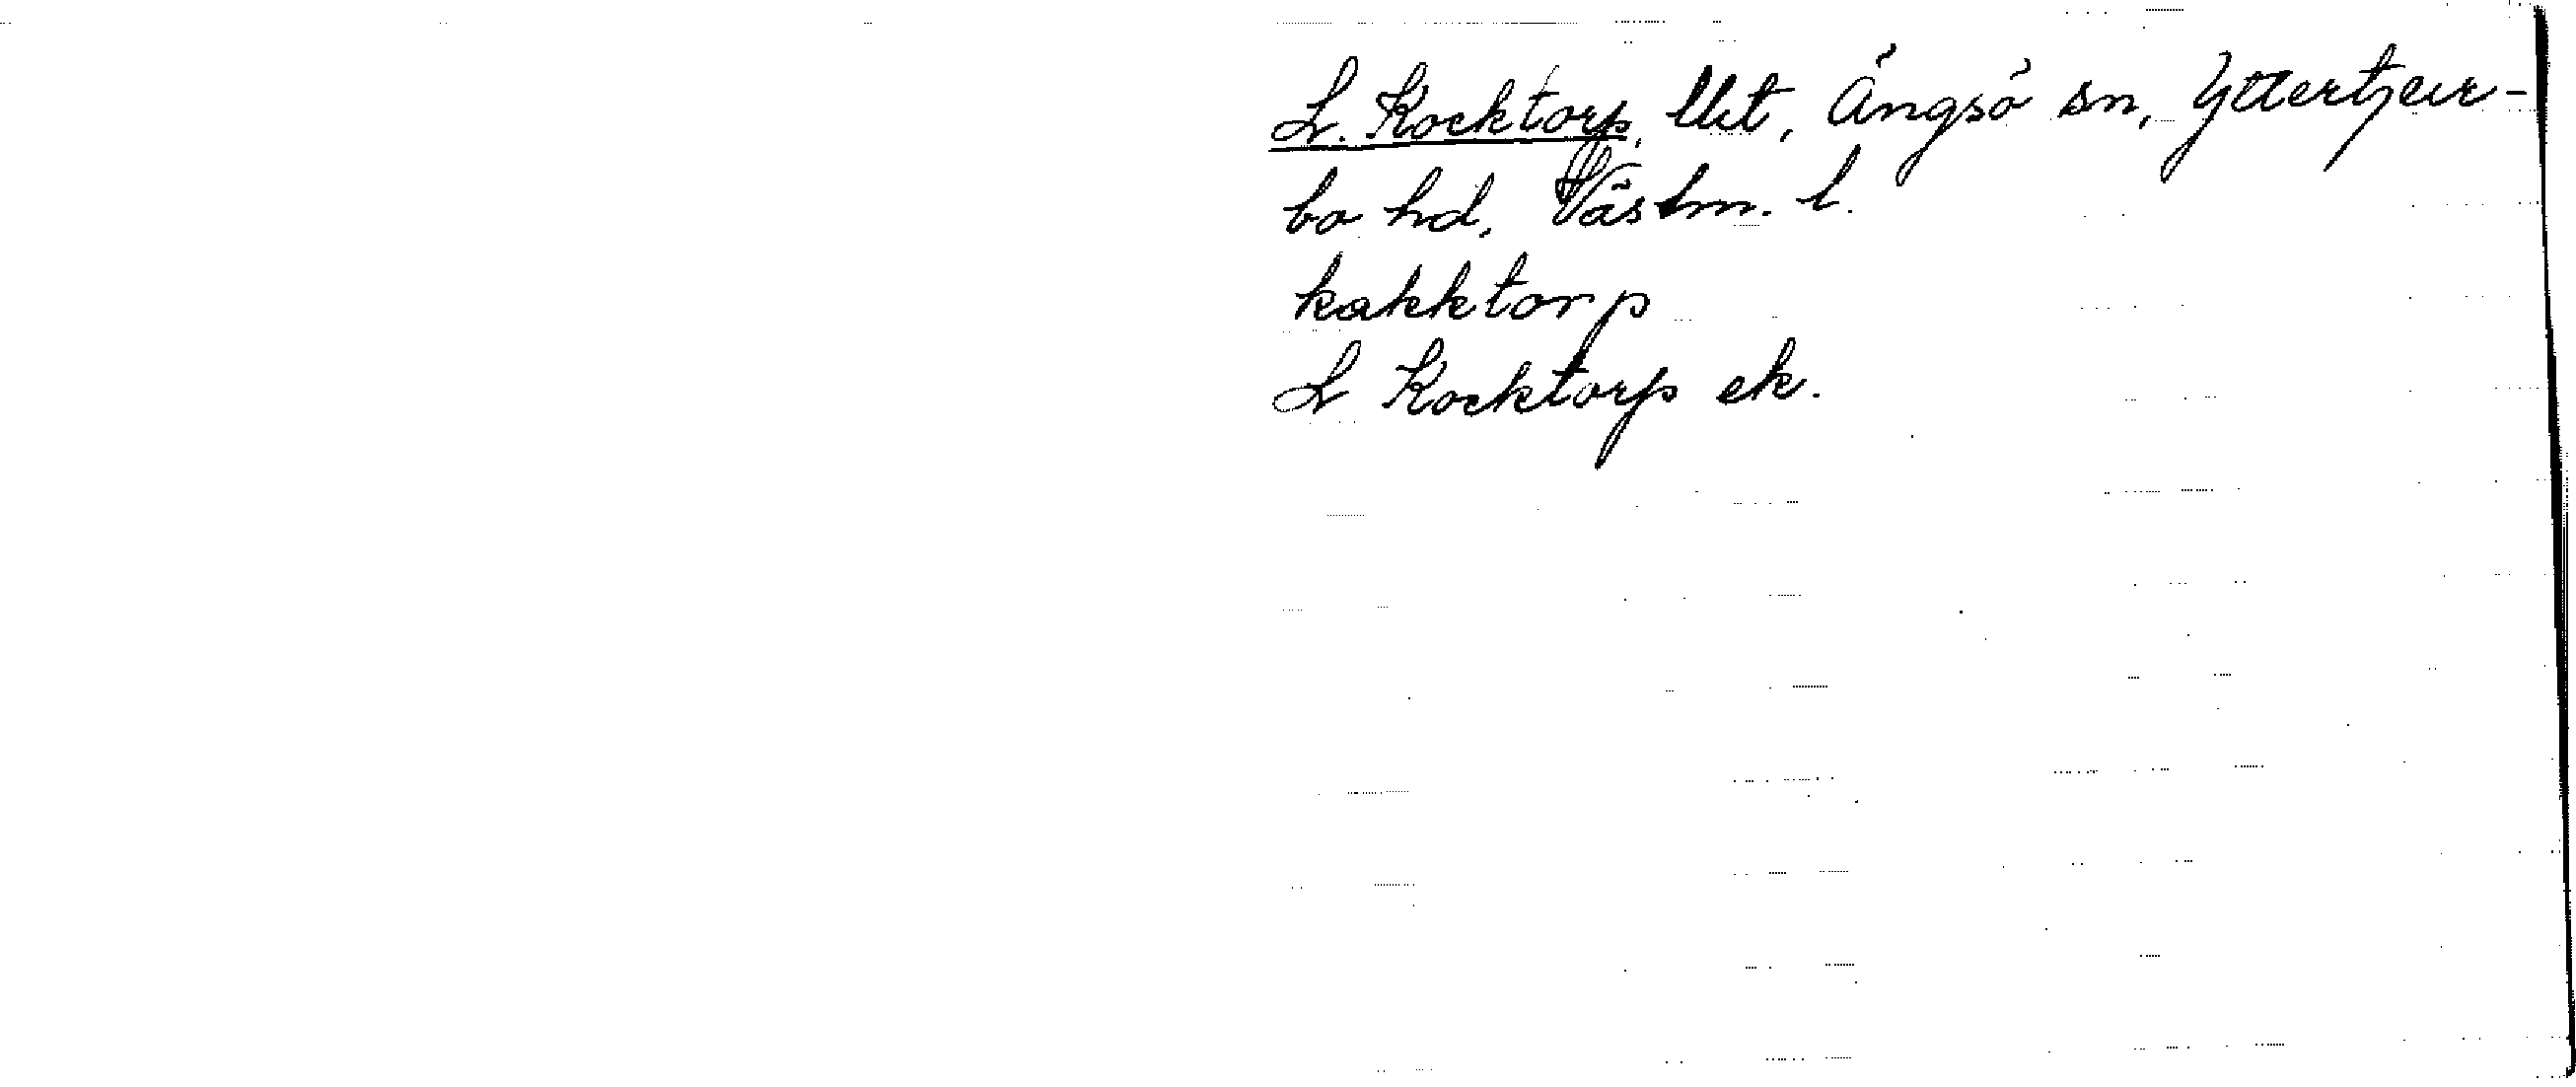 L. Kocktorp, Utt, Ängsö sn, Yttertjur-
bo hd, Västm. l.
kakktorp
L Kocktorp ek.